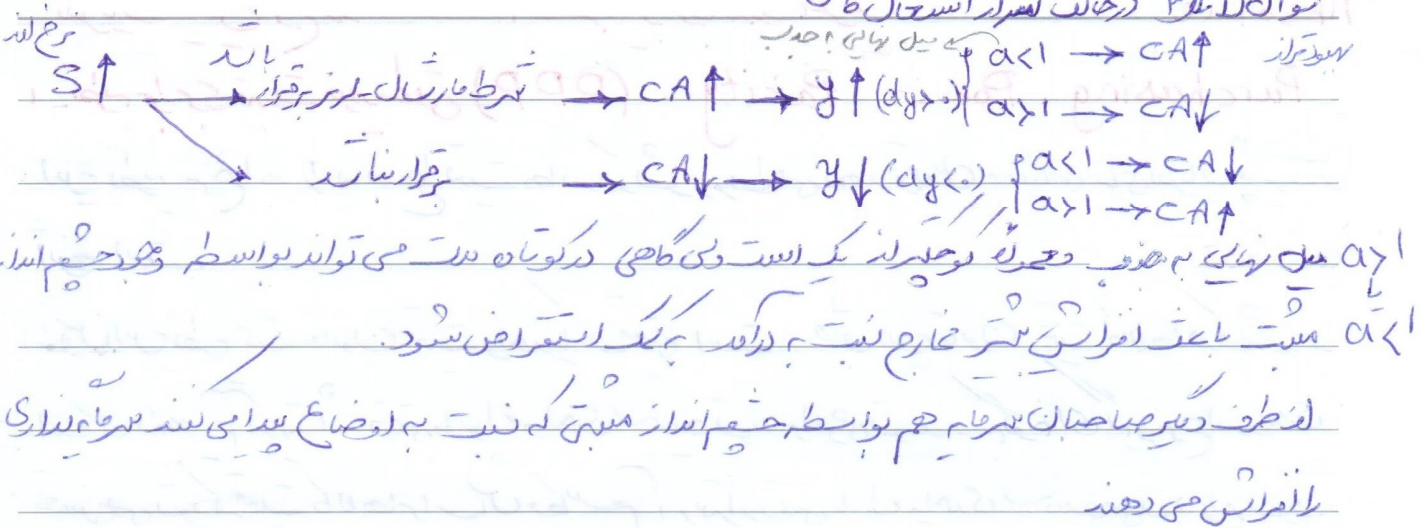 سوال امتحان در حالت اشتغال کامل
بهبود تراز
میل نهایی به جذب
نرخ ارز
a<1 → CA↑
S↑ → شرط مارشال-لرنر برقرار باشد → CA↑ → y↑ (dy>0) a>1 → CA↓
برقرار نباشد → CA↓ → y↓ (dy<0) a<1 → CA↓
a>1 → CA↑
a>1 میل نهایی به جذب معمولاً کوچکتر از یک است ولی گاهی در کوتاه مدت می تواند بواسطه وجود چشم انداز
یا
a<1 مثبت باعث افزایش بیشتر مخارج نسبت به درآمد به کمک استقراض شود.
از طرف دیگر صاحبان سرمایه هم بواسطه چشم انداز مثبتی که نسبت به اوضاع پیدا می کنند سرمایه گذاری
را افزایش می دهند